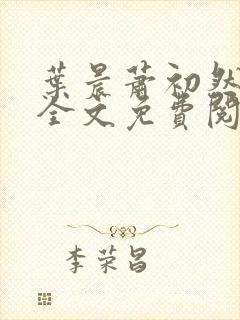 葉晨萧初然
全文免費閱
李荣昌